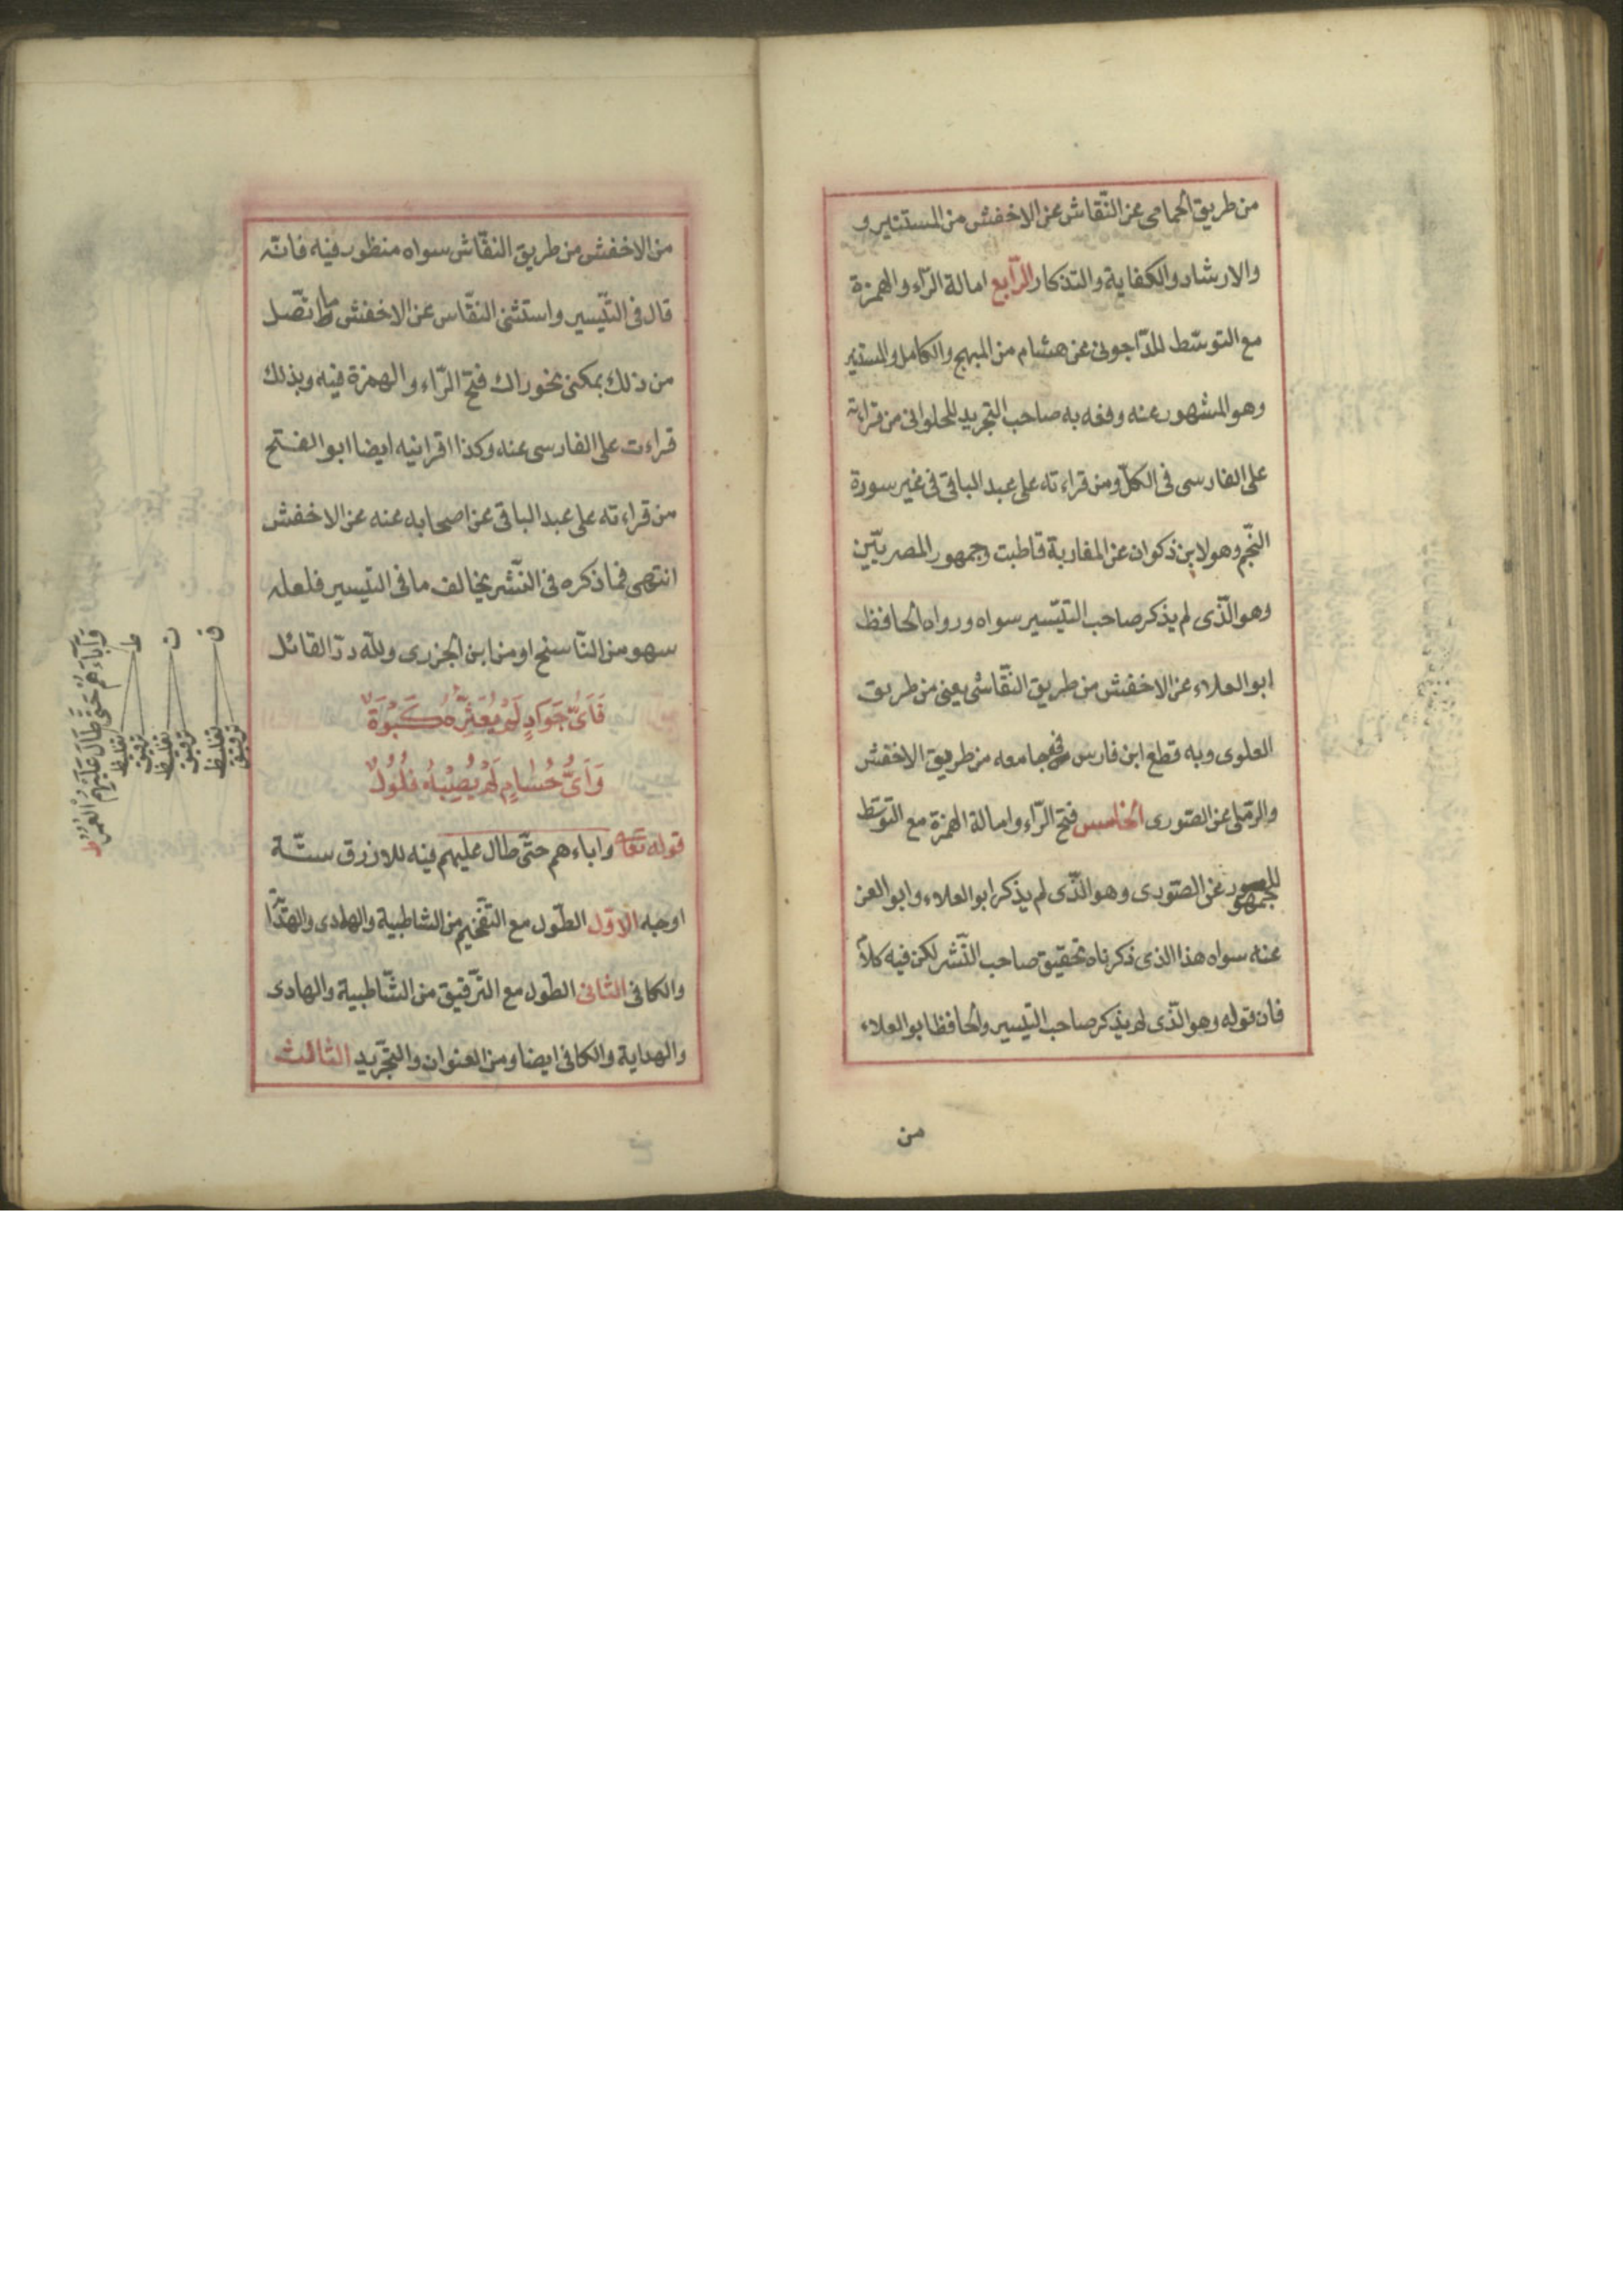 من طريق الحمامى عن النّقاش عن الاخفش من المستنير و
والارشاد والكفاية والتذكار الرّابع امالة الرّاء والهمزة
مع التوسّط للدّاجونى عن هشام من المبهج والكامل والمستنير
وهو المشهور عنه وقطع به صاحب التجريد للحلوانى من قراءته
على الفارسى فى الكلّ ومن قراءته على عبد الباقى فى غير سورة
النّجم وهو لابن ذكوان عن المغاربة قاطبت وجمهور المصريّين
وهو الّذى لم يذكر صاحب التيّسير سواه ورواه الحافظ
ابو العلاء عن الاخفش من طريق النقّاش يعنى من طريق
العلوى وبه قطع ابن فارس فى جامعه من طريق الاخفش
والرّملى عن الصّورى الخامس فتح الرّاء وامالة الهمزة مع التوسّط
للجمهور عن الصّورى وهو الّذى لم يذكر ابو العلاء وابو العز
عنه سواه هذا الذى ذكرناه تحقيق صاحب النّشر لكن فيه كلاما
فان قوله وهو الّذى لم يذكر صاحب التيسير والحافظ ابو العلاء
من
من الاخفش من طريق النقّاش سواه منظور فيه فانّه
قال فى التّيسير واستثنى النقّاس عن الاخفش ما اتّصل
من ذلك بمكنى نحو راك فتح الرّاء والهمزة فيه وبذلك
قراءت على الفارسى عنه وكذا اقرانيه ايضا ابو الفتح
من قراءته على عبد الباقى عن اصحابه عنه عن الاخفش
انتهى فما ذكره فى النّشر يخالف ما فى التيسير فلعله
سهو من النّاسخ او من ابن الجزرى ولله درّ القائل
فَاَىُّ جَوَادٍ لَمْ يُعَثِّرْهُ كَبْوَةٌ
وَاَىُّ حُسَامٍ لَمْ يُصِبْهُ فُلُولٌ
قوله تعا واباءهم حتّى طال عليهم فيه للازرق ستّة
اوجه الاوّل الطّول مع التّفخيم من الشاطبية والهادى والهدا
والكافى الثانى الطّول مع التّرقيق من الشّاطبية والهادى
والهداية والكافى ايضا ومن العنوان والتّجريد الثالث
وَآبَاءَهُمْ حَتَّى طَالَ عَلَيْهِمُ الْعُمُرُ
ط
تغليظ
ترقيق
ت
تغليظ
ترقيق
ق
تغليظ
ترقيق